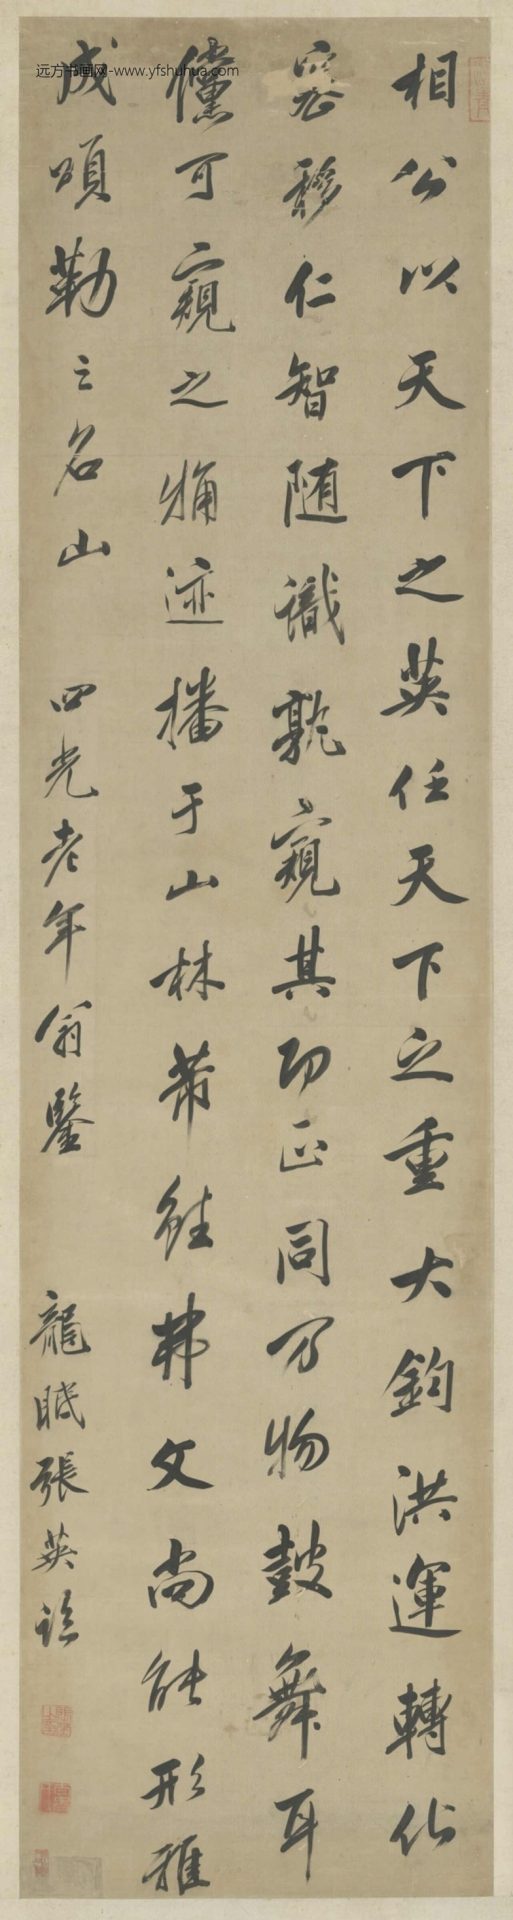 远方书画网-www.yfshuhua.com
相公以天下之英任天下之重大鈞洪運轉化
密移仁智随識孰窺其功正同万物鼓舞耳
儻可窺之痡迹播于山林芾雖弗文尚能形雅
成頌勒之名山 四光老年翁鑒 龍眠張英臨